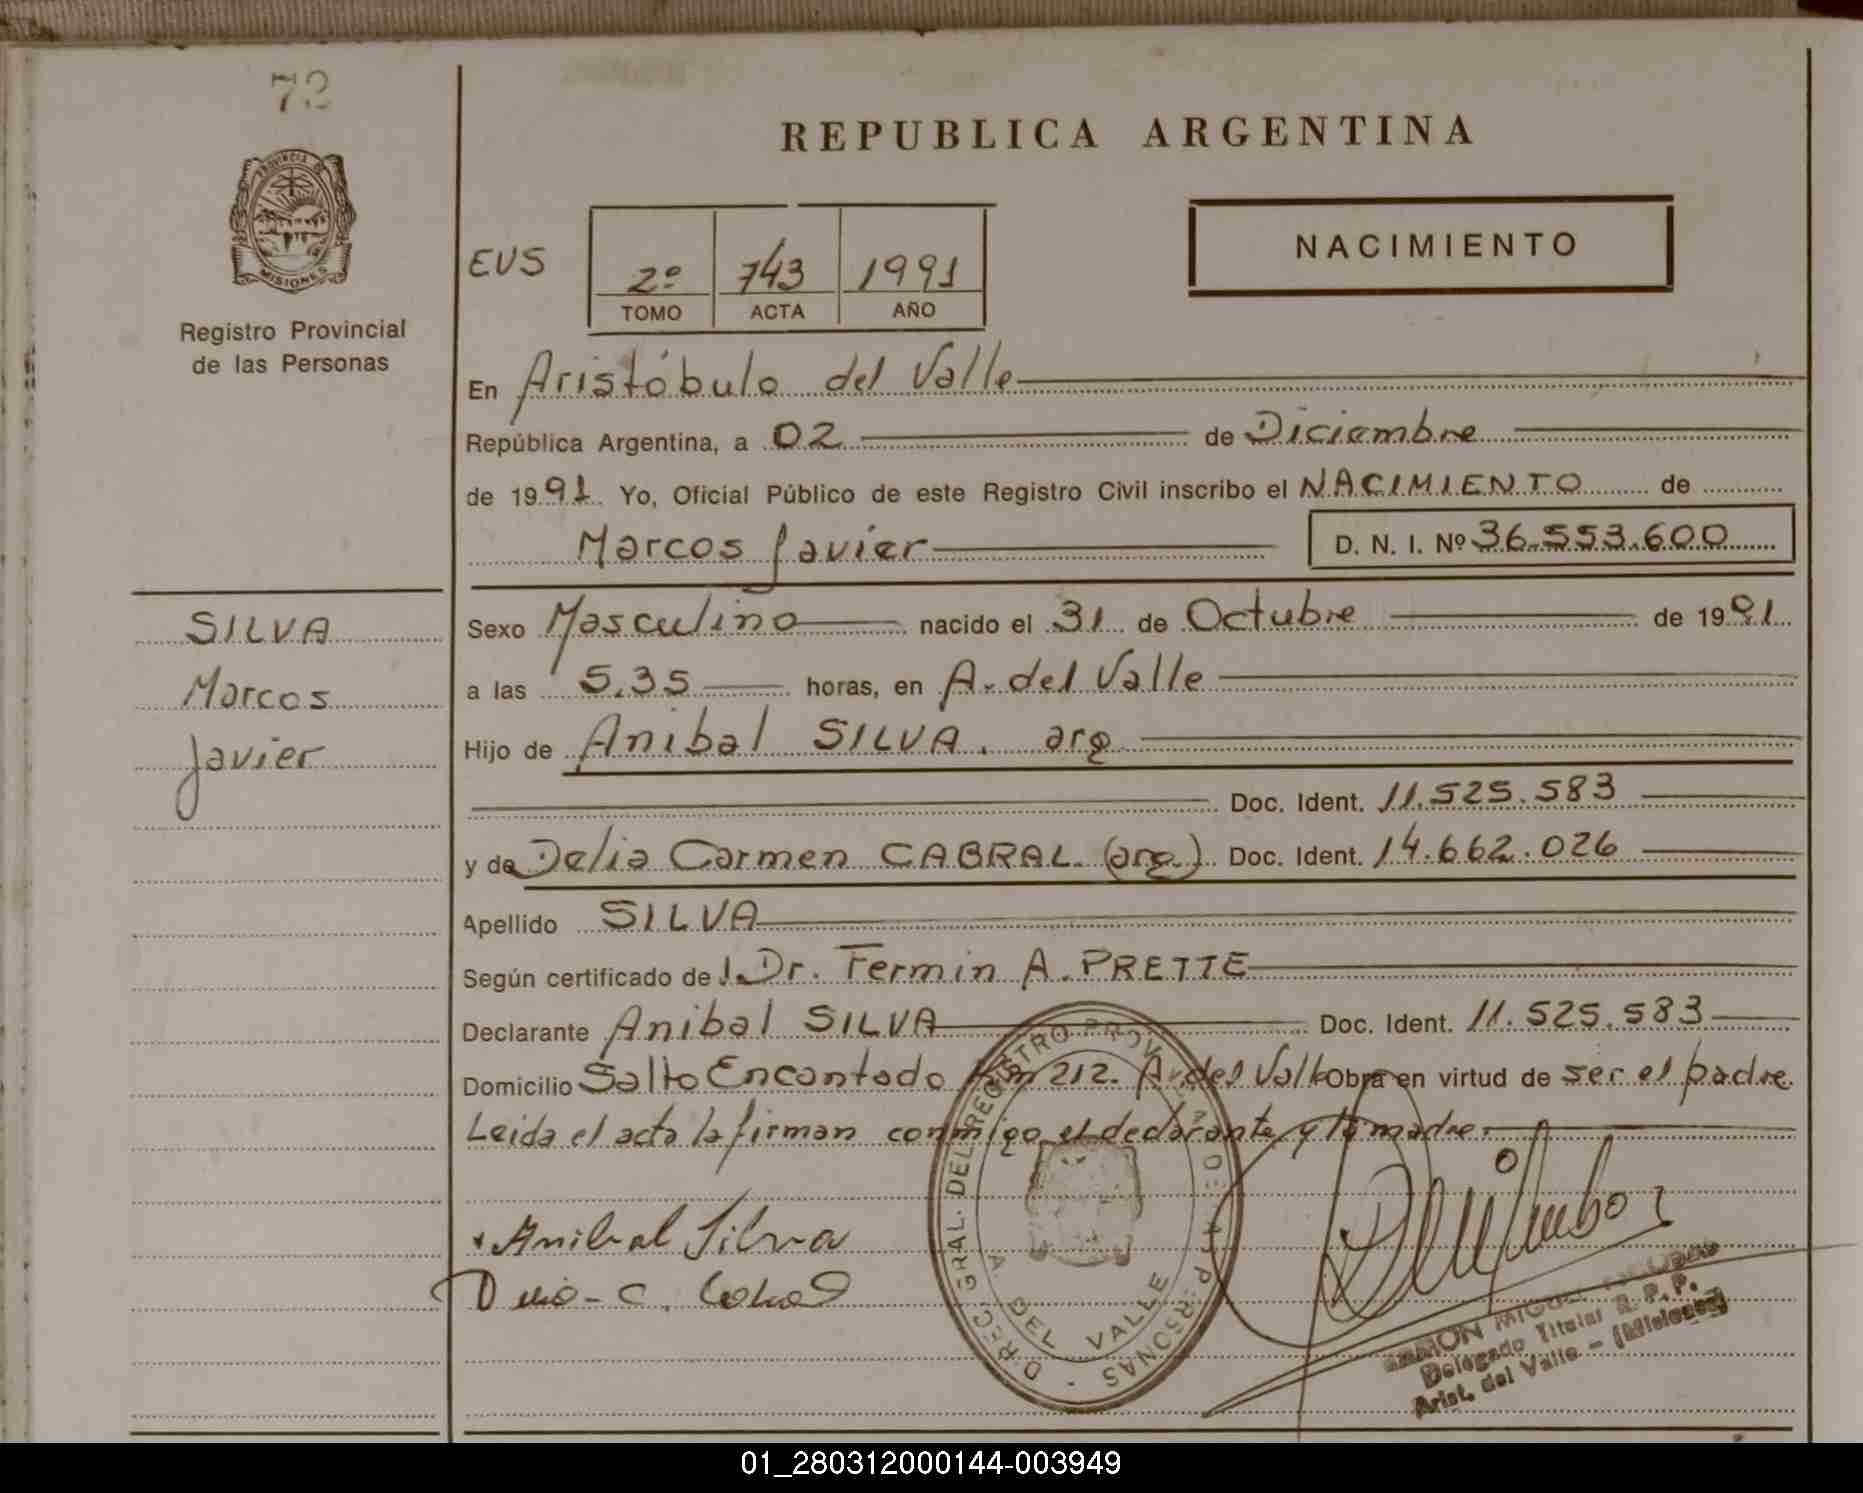 72
REPUBLICA ARGENTINA
PROVINCIA DE
MISIONES
Registro Provincial
de las Personas
EUS
2º 743 1991
TOMO ACTA AÑO
NACIMIENTO
En Aristóbulo del Valle
República Argentina, a 02 de Diciembre
de 1991 Yo, Oficial Público de este Registro Civil inscribo el NACIMIENTO de
Marcos Javier D. N. I. Nº 36.553.600
SILVA
Marcos
Javier
Sexo Masculino nacido el 31 de Octubre de 1991
a las 5.35 horas, en A. del Valle
Hijo de Anibal SILVA. arg
Doc. Ident. 11.525.583
y de Delia Carmen CABRAL. (arg.) Doc. Ident. 14.662.026
Apellido SILVA
Según certificado de l Dr. Fermin A. PRETTE
Declarante Anibal SILVA Doc. Ident. 11.525.583
Domicilio Salto Encantado Km 212. A. del Valle Obra en virtud de ser el padre
Leida el acta la firman conmigo el declarante y la madre.
Anibal Silva
DIREC. GRAL. DEL REGISTRO PROV. DE LAS PERSONAS
A. DEL VALLE
RAMON MIGUEL
Delegado Titular R. P. P.
Arist. del Valle - (Misiones)
01_280312000144-003949